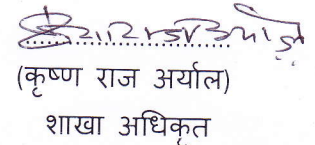 (कृष्ण राज अर्याल)
शाखा अधिकृत